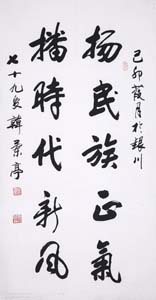 己卯葭月於銀川
扬民族正氣
播時代新風
七十九叟韓景亭